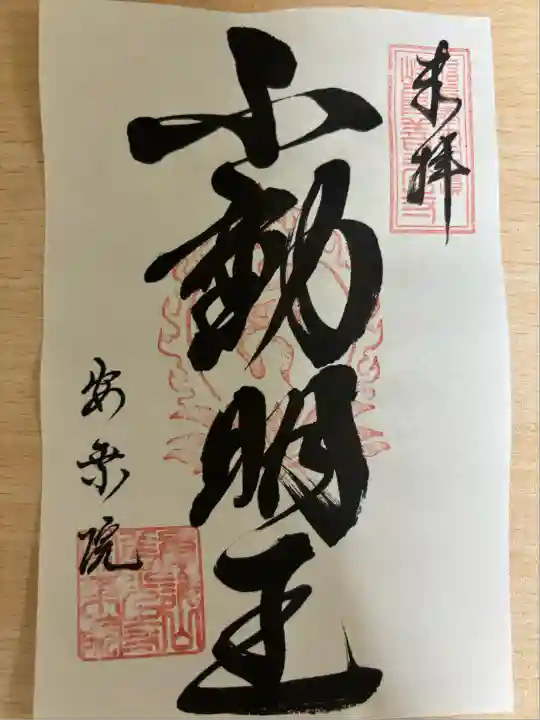 来拝
不動明王
安楽院